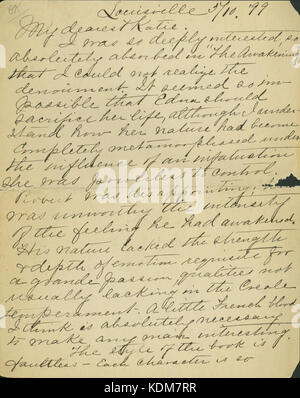 Louisville 5/10. '99
My dearest Katie,
I was so deeply interested so
absolutely absorbed in "The Awakening"
that I could not realize the
denoument. It seemed so im-
possible that Edna should
sacrifice her life, although I under-
stand how her nature had become
completely metamorphosed under
the influence of an infatuation
she was powerless to control.
Robert was disappointing;
was unworthy the intensity
of the feeling he had awakened.
His nature lacked the strength
& depth of emotion requisite for
a grande passion qualities not
usually lacking in the Creole
temperament. A little French blood
I think is absolutely necessary
to make any man interesting.
The style of the book is
faultless - Each character is so
alamy
Image ID: KDM7RR
www.alamy.com